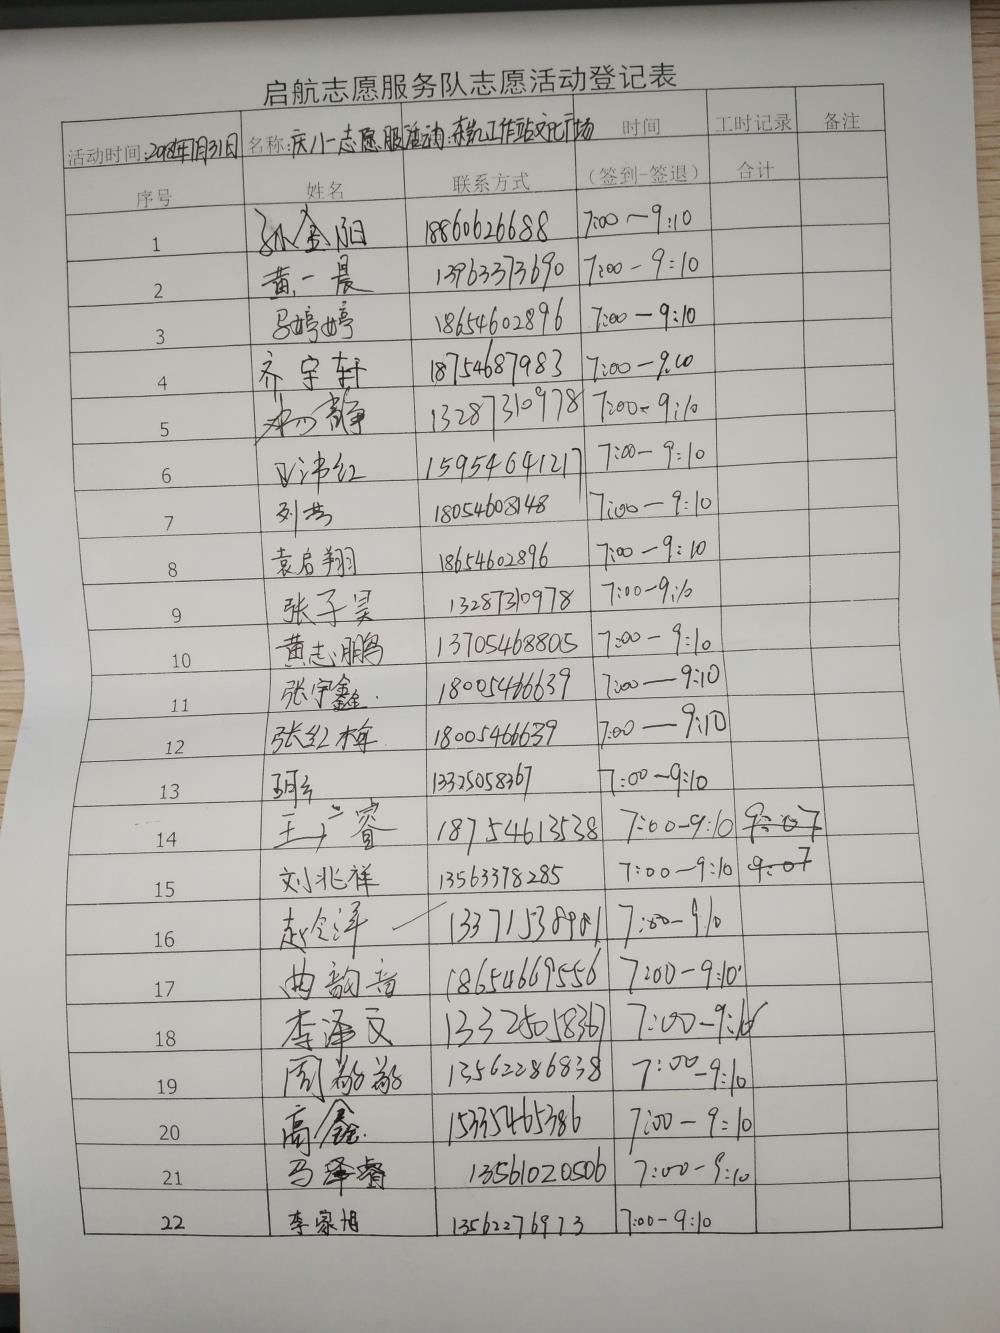 启航志愿服务队志愿活动登记表
活动时间:2018年7月31日 名称:庆八一志愿服务活动:东凯工作站文化广场 时间 工时记录 备注
序号 姓名 联系方式 (签到-签退) 合计
1 孙金阳 18860626688 7:00—9:10
2 黄一晨 13963373690 7:00-9:10
3 马婷婷 18654602896 7:00-9:10
4 齐宇轩 18754687983 7:00-9:10
5 静 13287310978 7:00-9:10
6 红 15954641217 7:00-9:10
7 刘 18054608148 7:00—9:10
8 袁启翔 18654602896 7:00-9:10
9 张子昊 13287310978 7:00-9:10
10 黄志鹏 13705468805 7:00-9:10
11 张宇鑫. 18005466639 7:00—9:10
12 张红梅 18005466639 7:00—9:10
13 13325058367 7:00-9:10
14 王广睿 18754613538 7:00-9:10 9:07
15 刘兆祥 13563378285 7:00-9:10 9:07
16 赵 洋 13371538981 7:00-9:10
17 曲韵音 18654669556 7:00-9:10
18 李泽文 13325058367 7:00-9:10
19 周敬敬 13562286838 7:00-9:10
20 高鑫. 15335465386 7:00-9:10
21 马泽睿 13561020506 7:00-9:10
22 李家旭 13562276973 7:00-9:10